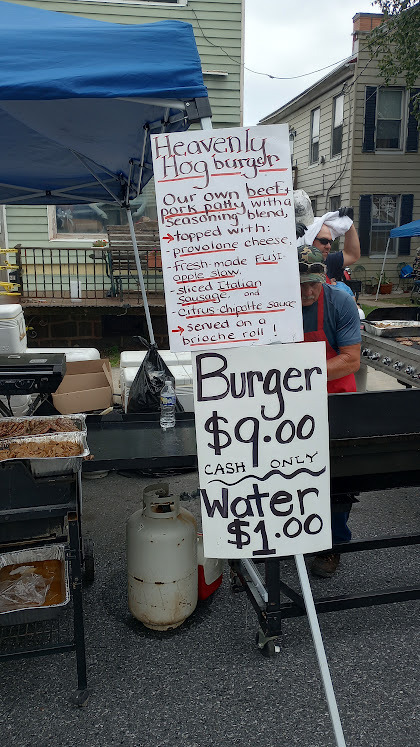 Heavenly
Hog burger
Our own beef +
pork patty with a
seasoning blend,
→ topped with:
- provalone cheese,
- fresh-made Fuji
apple slaw,
- sliced Italian
Sausage, and
- citrus-chipotle sauce
→ served on a
brioche roll!
Burger
$9.00
CASH ONLY
Water
$1.00